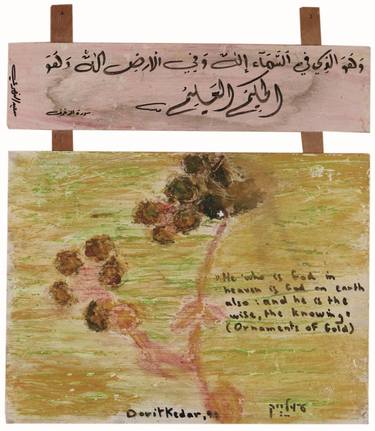 وَهُوَ الَّذِي فِي السَّمَآءِ إِلٰهٌ وَفِي الْأَرْضِ إِلٰهٌ وَهُوَ
الْحَكِيمُ الْعَلِيمُ
سورة الزخرف
"He who is God in
heaven is God on earth
also: and he is the
wise, the knowing"
(Ornaments of Gold)
Dorit Kedar,